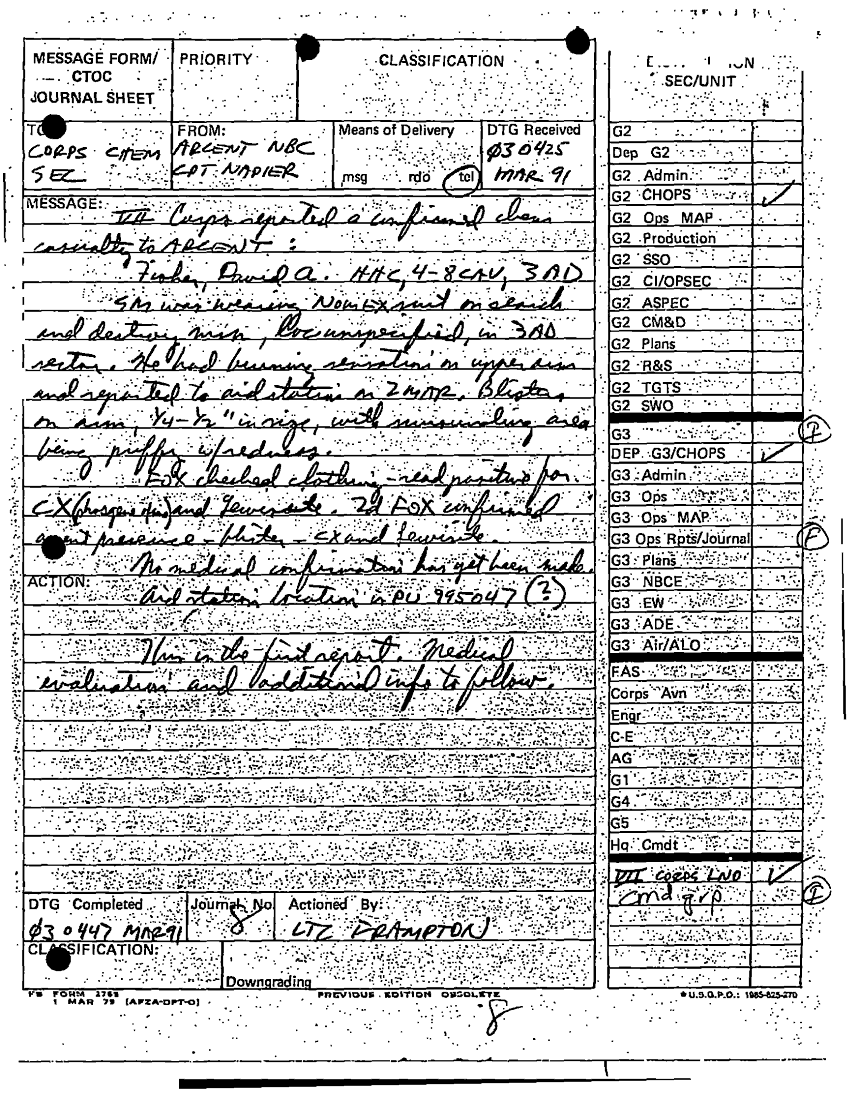 MESSAGE FORM/
CTOC
JOURNAL SHEET
PRIORITY
CLASSIFICATION
SEC/UNIT
CORPS CHEM
SEC
FROM:
ARCENT NBC
CPT NAPIER
Means of Delivery
msg rdo tel
DTG Received
Ø30425
MAR 91
MESSAGE:
VII Corps reported a confirmed chem
casualty to ARCENT:
Fisher, David A. HHC, 4-8 CAV, 3AD
SM was wearing NOMEX suit on search
and destroy msn, loc unspecified, in 3AD
sector. He had burning sensation on upper arm
and reported to aid station on 2 MAR. Blisters
on arm, 1/4-1/2" in size, with surrounding area
being puffy w/redness.
FOX checked clothing - read positive for
CX (phosgene oxime) and Lewisite. 2d FOX confirmed
agent presence - blister - CX and Lewisite.
No medical confirmation has yet been made.
ACTION:
Aid station location is PU 995047 (?)
This is the first report. Medical
evaluation and additional info to follow.
DTG Completed
Ø30447 MAR 91
Journal No
8
Actioned By:
LTC FRAMPTON
CLASSIFICATION:
Downgrading
1 MAR 79 [AFZA-DPT-O]
PREVIOUS EDITION OBSOLETE
8
G2
Dep G2
G2 Admin
G2 CHOPS ✓
G2 Ops MAP
G2 Production
G2 SSO
G2 CI/OPSEC
G2 ASPEC
G2 CM&D
G2 Plans
G2 R&S
G2 TGTS
G2 SWO
G3
DEP G3/CHOPS ✓
G3 Admin
G3 Ops
G3 Ops MAP
G3 Ops Rpts/Journal
G3 Plans
G3 NBCE
G3 EW
G3 ADE
G3 Air/ALO
FAS
Corps Avn
Engr
C-E
AG
G1
G4
G5
Hq Cmdt
VII CORPS LNO ✓
cmd grp
U.S.G.P.O.: 1985-625-270